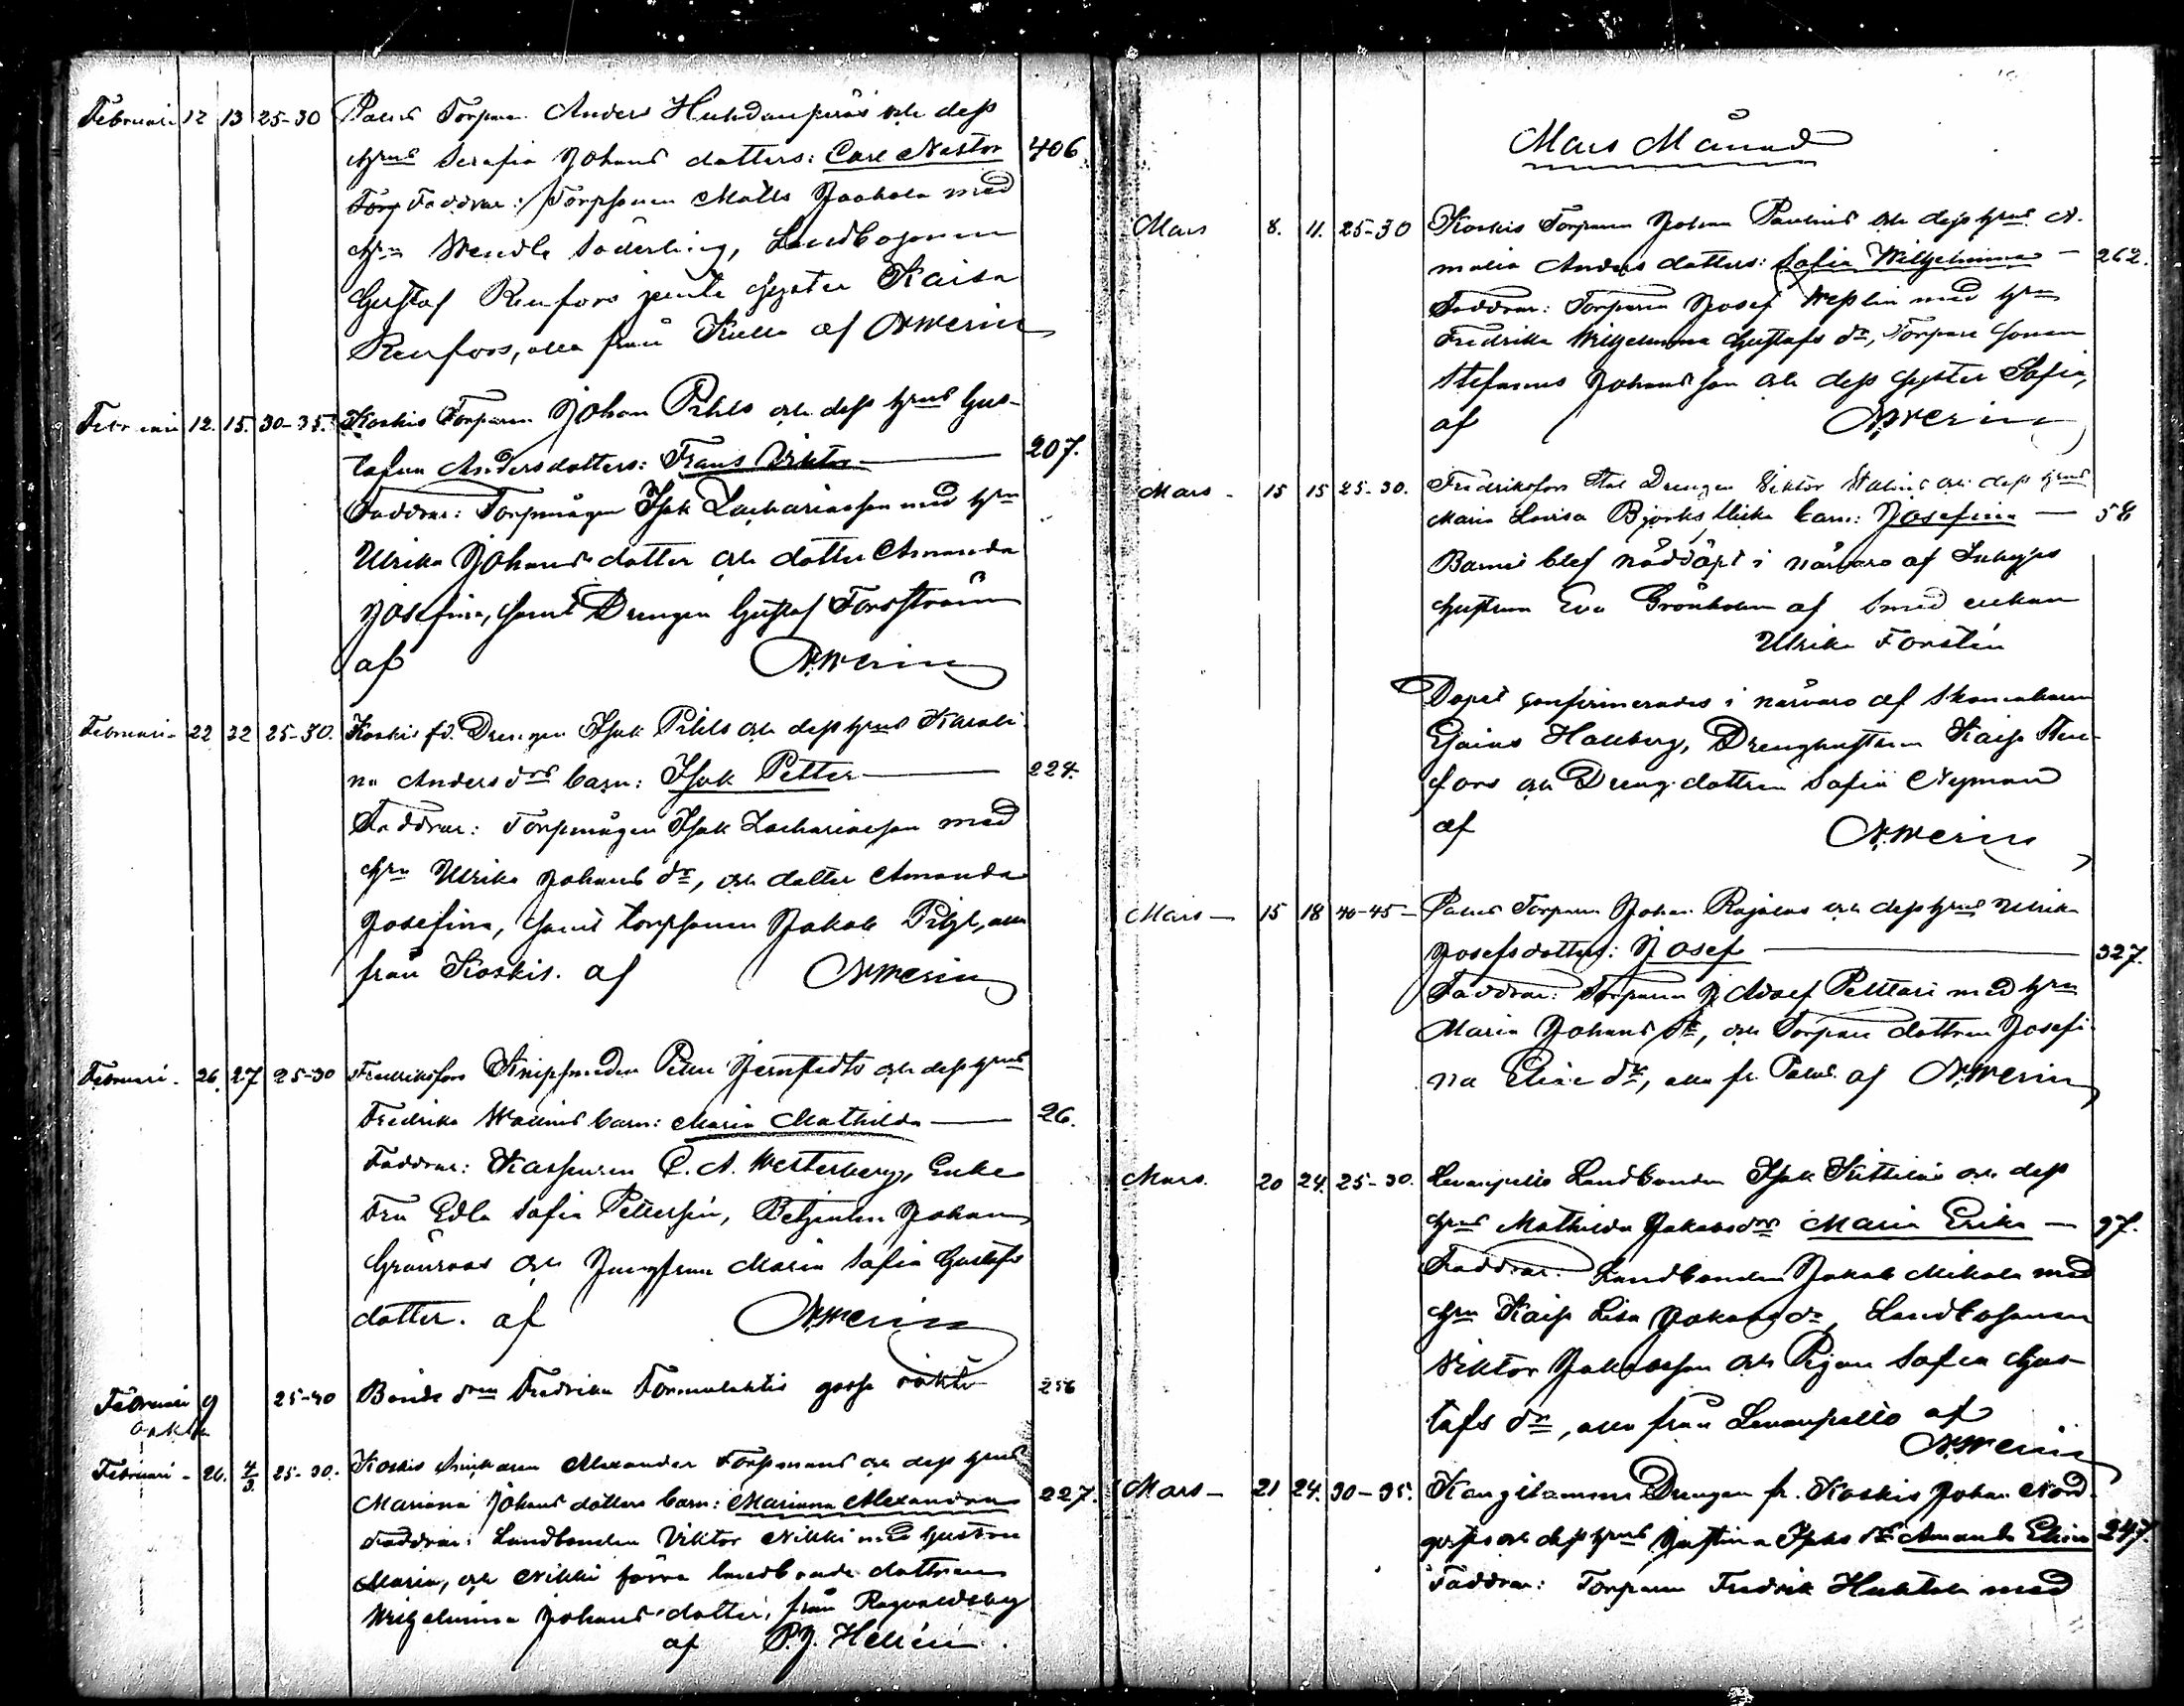 Februari 12 13 25-30 Palus Torparen Anders Huhdanperäs och dess
hus Serafia Johans dotters: Carl Nestor 406
Faddrar: Torpsonen Matts Jaakola med
hn Wendla Söderling, Landbosonen
Gustaf Renfors jemte syster Kaisa
Renfors, alla från Kulla af
Februari 12. 15. 30-35. Koskis Torparen Johan Pihls och dess hus Gus-
tafva Andersdotters: Frans Viktor 207.
Faddrar: Torpmågen Isak Zachariasson med hn
Ulrika Johans dotter och dotter Amanda
Josefina, samt Drengen Gustaf Forsström
af
Februari - 22 22 25-30. Koskis fd. Drengen Isak Pihls och dess hus Karoli-
na Anders drs barn: Isak Petter 224.
Faddrar: Torpmågen Isak Zachariasson med
hn Ulrika Johans dr, och dotter Amanda
Josefina, samt torpsonen Jakob Pihl, alla
från Koskis. af
Februari - 26. 27 25-30 Fredriksfors Knipsmeden Petter Jernstedts och dess hus
Fredrika Wallins barn: Maria Mathilda 26.
Faddrar: Kassören C. A. Westerberg, Enke
Fru Edla Sofia Pettersén, Betjenten Johan
Grönroos och Jungfrun Maria Sofia Gustafs
dotter. af
Februari 9 25-40 Bonde drn Fredrika gosse 256
Februari - 26. 4/3. 25-30. Koskis Alexander Torpmans och dess hus
Mariana Johans dotters barn: Mariana Alexandra 227.
Faddrar: Landbonden Viktor Nikki med hustrun
Maria, och Nikki förra landbonde dottren
Wilhelmina Johans dotter, från Ragvaldsby
af P.J. Hellén.
Mars Månad
Mars 8. 11. 25-30 Koskis Torparen Johan Paulins och dess hus A-
malia Anders dotters: Sofia Wilhelmina - 262.
Faddrar: Torparen Josef Weslin med hn
Fredrika Wilhelmina Gustafs dr, Torpare sonen
Stefanus Johansson och dess syster Sofia,
af
Mars - 15 15 25-30. Fredriksfors Stal Drengen Viktor Wallins och dess hus
Maria Lovisa Björks barn: Josefina - 58
Barnet blef nöddöpt i närvaro af Inhyses
hustrun Eva Grönholm af Smed enkan
Ulrika Forstén
Dopet confirmerades i närvaro af Skomakaren
Hallberg, Drenghustrun Kaisa Sten-
fors och Dreng dottren Sofia Nyman
af
Mars - 15 18 40-45 - Palus Torparen Johan Rajalas och dess hus Ulrika
Josefsdotters: Josef 327.
Faddrar: Torparen J Adolf Pelttari med hn
Maria Johans dr, och Torpare dottren Josefi-
na Elise dr, alla fr. Palus. af
Mars. 20 24. 25-30. Levanpelto Landbonden Isak Kittiläs och dess
hus Mathilda Jakobsdrs Maria Erika - 97.
Faddrar: Landbonden Jakob Mikola med
hn Kaisa Lisa Jakobs dr, Landbosonen
Viktor Jakobsson och Pigan Sofia Gus-
tafs dr, alla från Levanpelto af
Mars - 21 24. 30-35. Kangilamme Drengen fr. Koskis Johan Nord-
och dess hus Justina Isaks drs Amanda Elina 247.
Faddrar: Torparen Fredrik Huhtala med